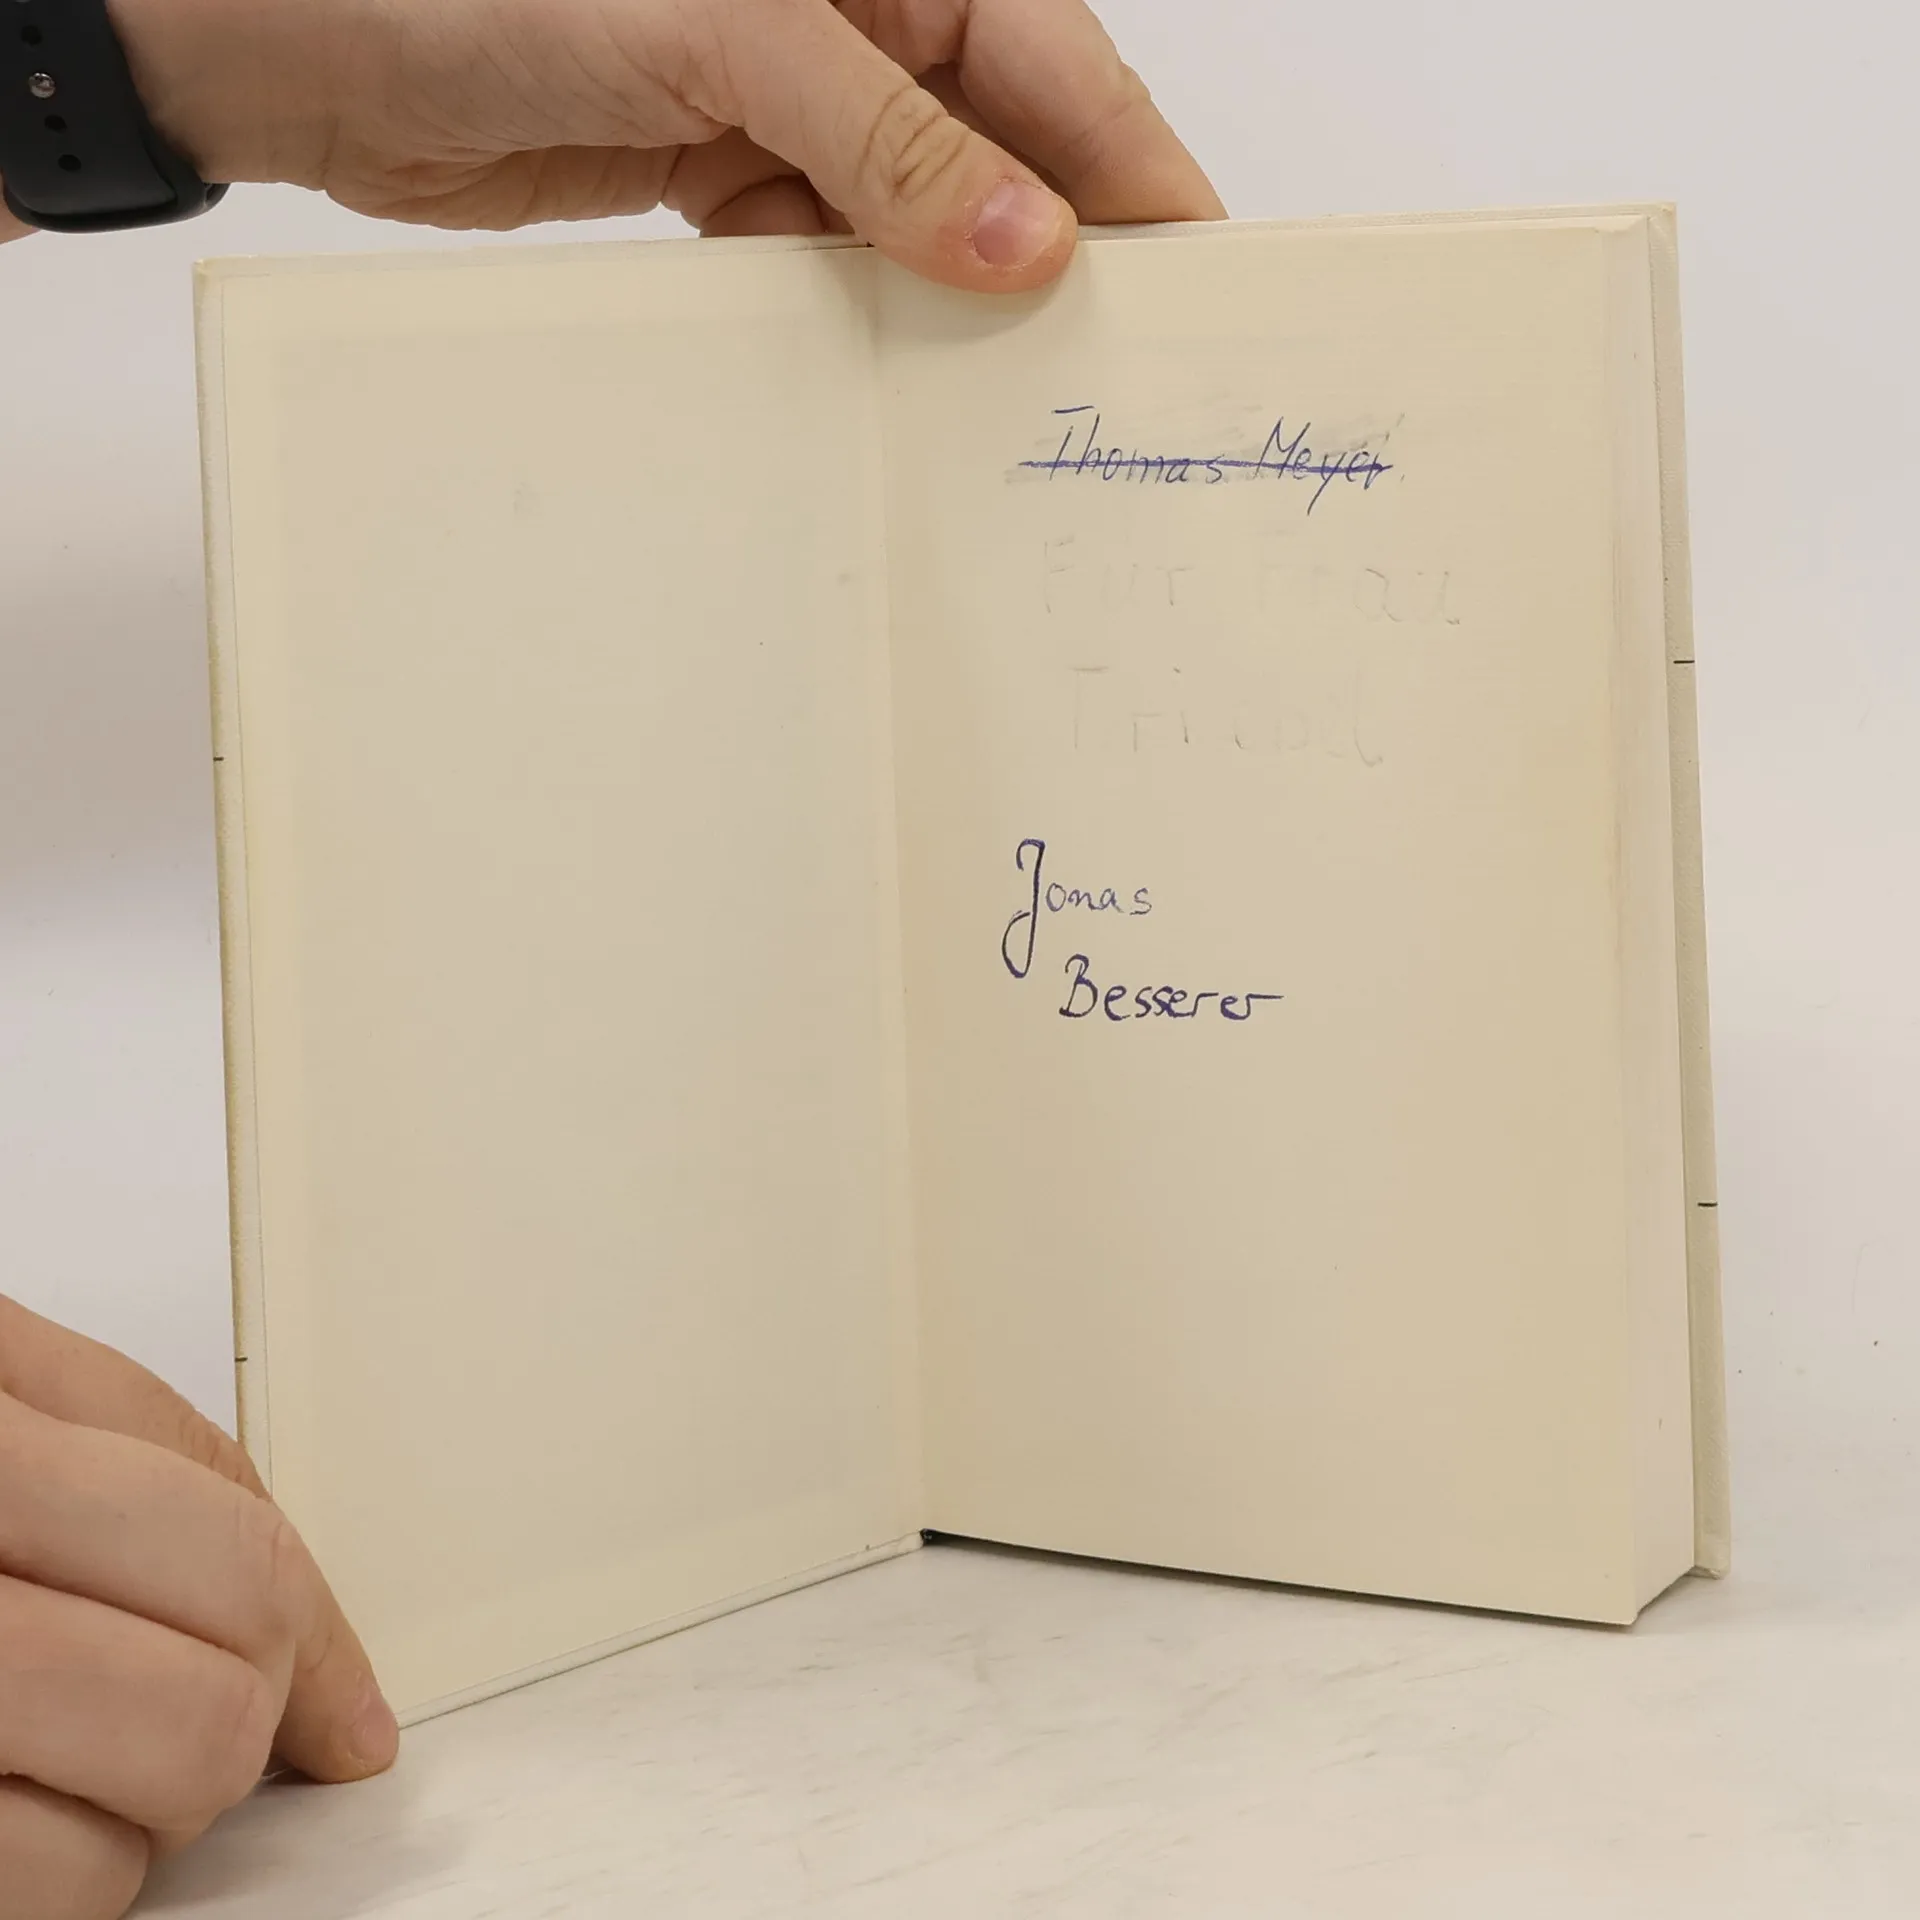 Thomas Meyer
Für Frau
Jonas
Besserer